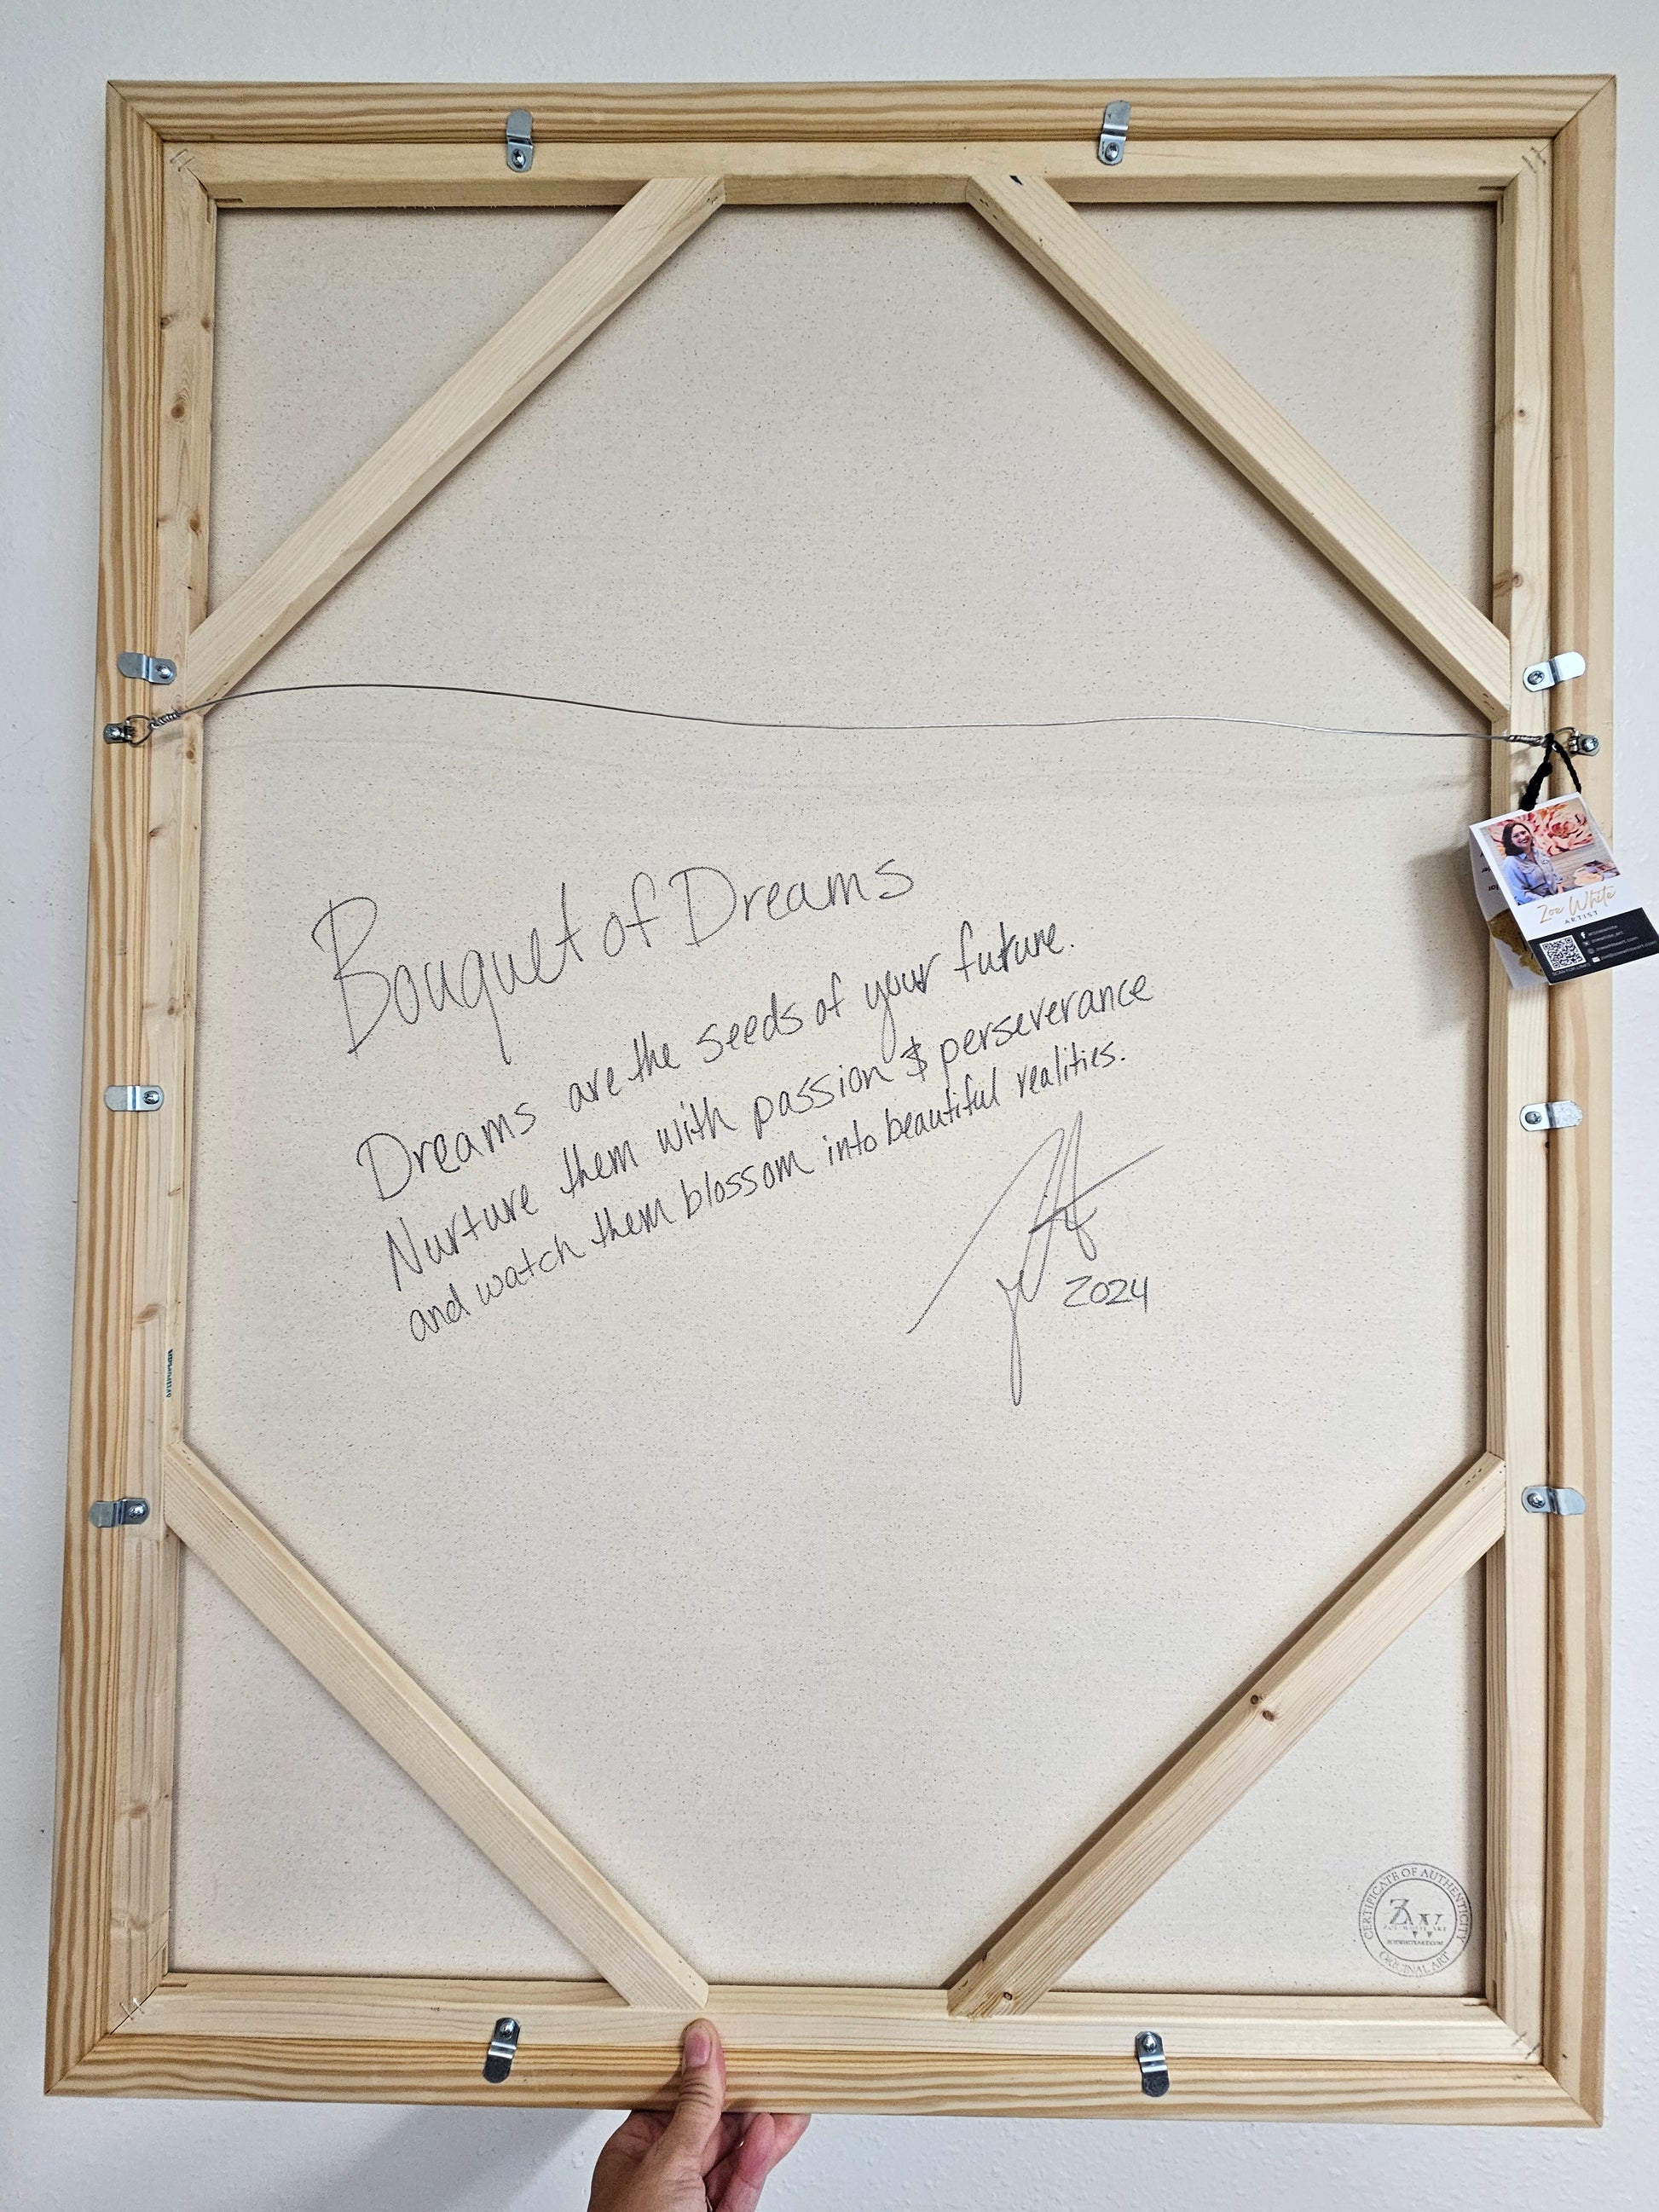 Bouquet of Dreams
Dreams are the seeds of your future.
Nurture them with passion & perseverance
and watch them blossom into beautiful realities.
2024
Zoe White
ARTIST
CERTIFICATE OF AUTHENTICITY
ZW
ZOE WHITE ART
ZOEWHITEART.COM
ORIGINAL ART